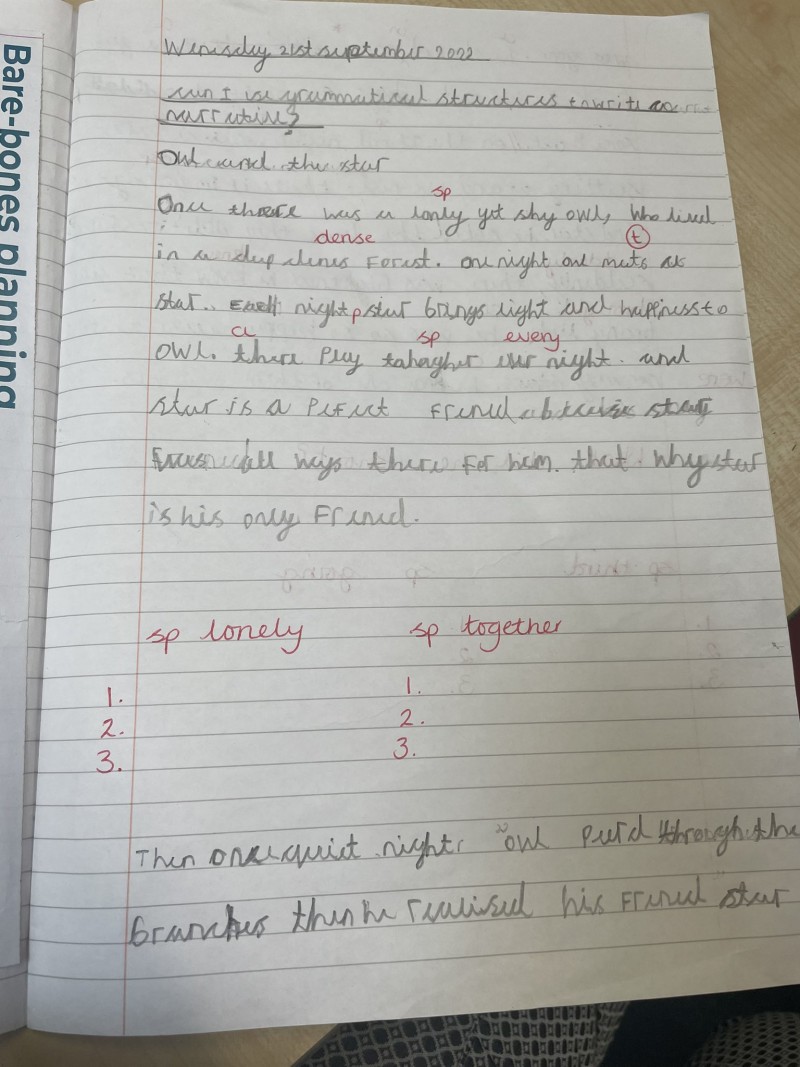 Bare-bones planning
Wenesday 21st september 2022
can I use grammatical structures to write a
narrative?
Owl and the star
sp
Once there was a lonly yet shy owl, Who lived
dense t
in a deep denes Forest. one night owl meets a
star. Each night p star brings light and happiness to
cl sp every
owl. there Play tahagher ever night. and
star is a Perfect Freind
all ways there For him. that Why star
is his only Freind.
sp lonely sp together
1. 1.
2. 2.
3. 3.
Then one quiet night, owl through the
branches then he realised his Freind star